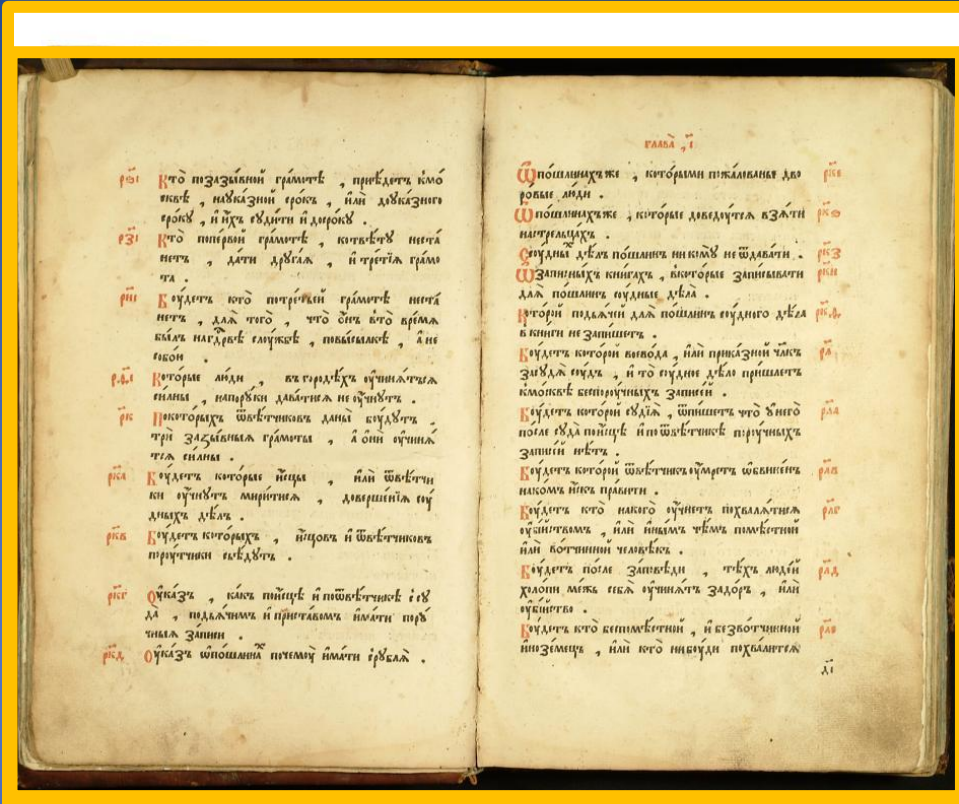 рѕ҃і Кто̀ позазы́вной гра́мотѣ , прїѣдетъ кмо́
сквѣ̀ , наука́зной сро́къ , и҆лѝ доука́зного
сро́ку , и҆и҆́хъ суди́ти и҆досро́ку .
рз҃і Кто̀ попе́рвой гра́мотѣ , ко̾твѣ́ту неста́
нетъ , да́ти друга́я , и҆ тре́тїѧ гра́мо
та .
ри҃і Бꙋ́детъ кто̀ потре́тьей гра́мотѣ неста́
нетъ , для̀ того̀ , что̀ о҆́нъ вто̀ вре́мѧ
бы́лъ нагдⷭ҇рвѣ слꙋ́жбѣ , повы́сылкѣ , а҆ не
собо́ю .
рѳ҃і Кото́рые лю́ди , въ городѣ́хъ ᲂу҆чиня́тъсѧ
си́лны , напору́ки дава́тисѧ не ᲂу҆чну́тъ .
рк҃ Покото́рыхъ ѿвѣ́тчиковъ даны̀ бꙋ́дутъ .
трѝ зазы́вныѧ гра́моты , а҆ о҆нѝ ᲂу҆чиня́
тсѧ си́лны .
рк҃а Бꙋ́детъ кото́рые и҆сцы̀ , и҆лѝ ѿвѣ́тчи
ки ᲂу҆чну́тъ мири́тисѧ , довершенїѧ сꙋ́
дныхъ дѣ́лъ .
рк҃в Бꙋ́детъ кото́рыхъ , и҆сцо́въ и҆ ѿвѣ́тчиковъ
порꙋ́тчики съѣ́дутъ .
рк҃г Оу҆ка́зъ , ка́къ пои҆сцѣ̀ и҆ поѿвѣ́тчикѣ ѕ҆су
да̀ , подья́чимъ и҆ при́ставомъ и҆ма́ти пору́
чныѧ за́писи .
рк҃д Оу҆ка́зъ ѡ҆по́шлинаⷯ почемꙋ̀ и҆ма́ти срубля̀ .
глава̀ , і҃
Ѡ҆по́шлинахъже , кото́рыми пожа́лованые дво рк҃е
ро́вые лю́ди .
Ѡ҆по́шлинахъже , кото́рые доведꙋ́тсѧ взя́ти рк҃ѕ
настрельца́хъ .
Сꙋ́дныⷯ дѣ́лъ по́шлинъ ни кому̀ не ѿдава́ти . рк҃з
Ѡ҆за́писныхъ кни́гахъ , вкото́рые запи́сывати рк҃и
для̀ по́шлинъ сꙋ́дные дѣла̀ .
Кото́рой подья́чей для̀ по́шлинъ сꙋ́дного дѣ́ла рк҃ѳ
в кни́ги не запи́шетъ .
Бꙋ́детъ кото́рой воево́да , и҆лѝ прика́зной чл҃къ рл҃
засꙋ́дя сꙋ́дъ , и҆ то̀ сꙋ́дное дѣ́ло пришле́тъ
кмо́сквѣ беспорꙋ́чныхъ за́писей .
Бꙋ́детъ кото́рой судїѧ̀ , ѿпи́шетъ что̀ у҆ него̀ рл҃а
по́сле суда̀ пои҆сцѣ̀ и҆ поѿвѣ́тчикѣ порꙋ́чныхъ
за́писей нѣ́тъ .
Бꙋ́детъ кото́рой ѿвѣ́тчикъ ᲂу҆мре́тъ ѡ҆бвине́нъ рл҃в
на ко́мъ и҆́скъ пра́вити .
Бꙋ́детъ кто̀ на кого̀ ᲂу҆чне́тъ похваля́тисѧ рл҃г
ᲂу҆би́йствомъ , и҆лѝ и҆ны́мъ чѣ́мъ помѣ́стной
и҆лѝ во́тчинной человѣ́къ .
Бꙋ́детъ по́сле за́повѣди , тѣ́хъ люде́й рл҃д
холо́пи ме́жъ себя̀ ᲂу҆чиня́тъ задо́ръ , и҆лѝ
ᲂу҆би́йство .
Бꙋ́детъ кто̀ беспомѣ́стной , и҆ безво́тчинной рл҃е
и҆нозе́мецъ , и҆лѝ кто̀ нибꙋ́ди похва́литсѧ
д҃і